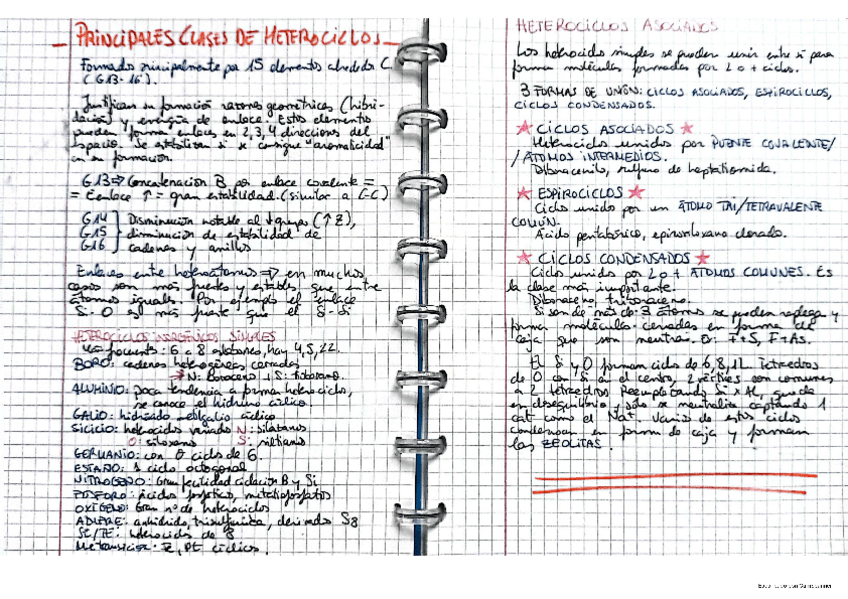 PRINCIPALES CLASES DE HETEROCICLOS
Formado principalmente por 15 elementos alrededor C
(G13-16).
Justifican su formación razones geométricas (hibri-
dación) y energía de enlace. Estos elementos
pueden formar enlaces en 2, 3, 4 direcciones del
espacio. Se estabilizan si se consigue "aromaticidad"
en su formación.
G13 ⇒ Concatenación B por enlace covalente =
= Eenlace ↑ = gran estabilidad. (similar a C-C)
G14 } Disminución notable al ↓ grupo (↑Z),
G15 } disminución de estabilidad de
G16 } cadenas y anillos
Enlaces entre heteroátomos ⇒ en muchos
casos son más fuertes y estables que entre
átomos iguales. Por ejemplo el enlace
Si-O es más fuerte que el Si-Si
HETEROCICLOS INORGÁNICOS SIMPLES
Más frecuente: 6 a 8 eslabones, hay 4, 5, 22.
BORO: cadenas heterogéneas cerradas
N: Boraceno S: tioborano
ALUMINIO: poca tendencia a formar heterociclos,
se conoce el hidruro cíclico
GALIO: hidrizado cíclico
SICILIO: heterociclos variado N: silazanos
O: siloxano S: siltiano
GERMANIO: con O ciclo de 6.
ESTAÑO: 1 ciclo octogonal
NITROGENO: Gran facilidad ciclación B y Si
FOSFORO: Ácidos fosfórico, metafosfatos
OXÍGENO: Gran nº de heterociclos
AZUFRE: anhídrido, trisulfúrico, derivado S8
SE/TE: heterociclos de 8
Metransición: Pt cíclicos.
HETEROCICLOS ASOCIADOS
Los heterociclo simples se pueden unir entre sí para
formar moléculas formadas por 2 o + ciclos.
3 FORMAS DE UNIÓN: CICLOS ASOCIADOS, ESPIROCICLOS,
CICLOS CONDENSADOS.
★ CICLOS ASOCIADOS ★
Heterociclos unidos por PUENTE COVALENTE/
/ÁTOMOS INTERMEDIOS.
Diboracenilo, sulfuro de heptatiomida.
★ ESPIROCICLOS ★
Ciclos unido por un ÁTOMO TRI/TETRAVALENTE
COMÚN.
Ácido pentabórico, espirosiloxano clorado.
★ CÍCLOS CONDENSADOS ★
Ciclos unido por 2 o + ÁTOMOS COMUNES. Es
la clase más importante.
Diboraceno, triboraceno.
Si son de más de 3 átomos se pueden replegar y
formar moléculas cerradas en forma de
caja que son neutras. P+S, P+As.
El Si y O forman ciclos de 6, 8, 12. Tetraedros
de O con Si en el centro, 2 vértices son comunes
a 2 tetraedros. Reemplazando Si x Al, queda
en desequilibrio y sólo se neutraliza captando 1
cat como el Na⁺. Varios de estos ciclos
condensan en forma de caja y forman
las ZEOLITAS.